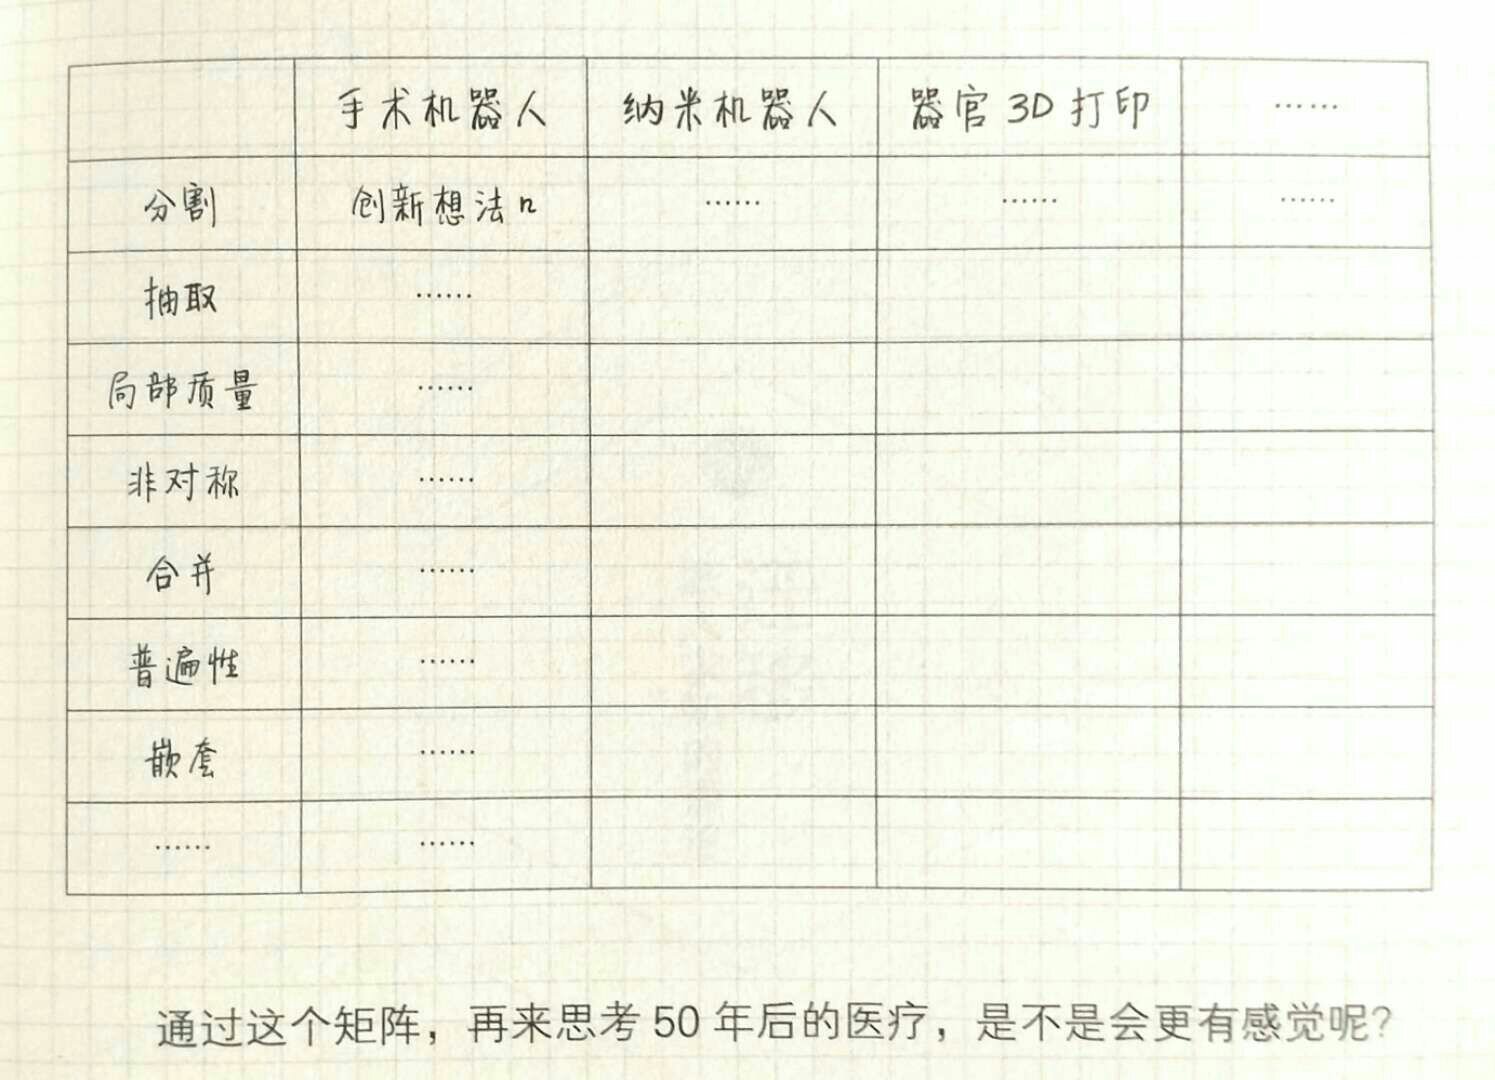 手术机器人 纳米机器人 器官3D打印 ……
分割 创新想法n …… …… ……
抽取 ……
局部质量 ……
非对称 ……
合并 ……
普遍性 ……
嵌套 ……
…… ……
通过这个矩阵，再来思考50年后的医疗，是不是会更有感觉呢？